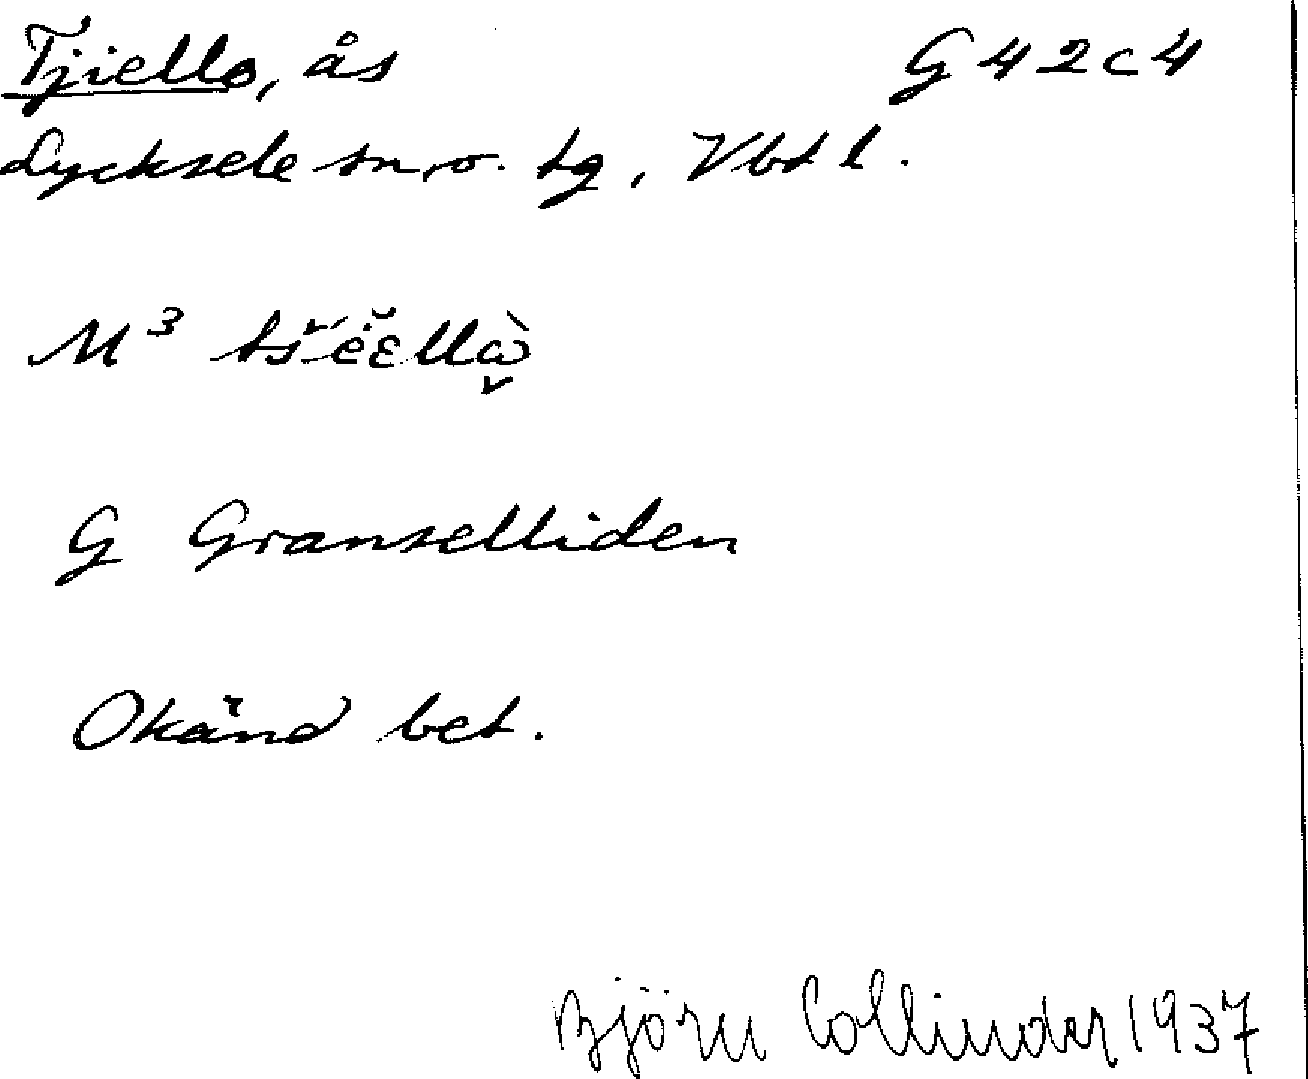 Tjiello, ås G42c4
Lycksele sn, o. tg, Vbtl.
M³
G Granselliden
Okänd bet.
Björn Collinder 1937